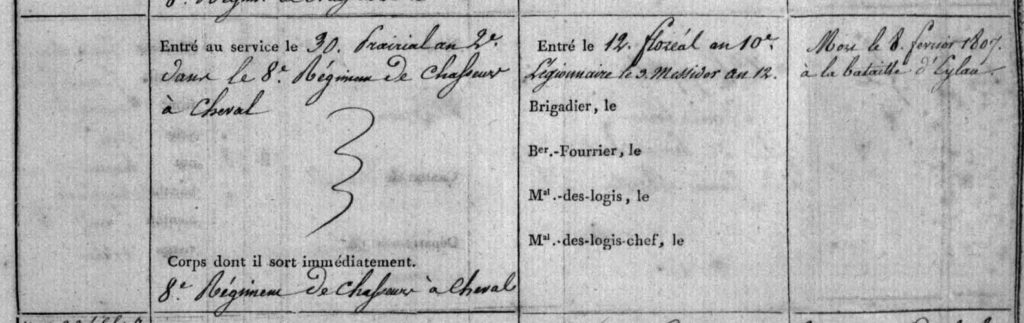 Entré au service le 30. Prairial an 2e.
dans le 8e. Régiment De Chasseurs
à Cheval
Corps dont il sort immédiatement.
8e. Régiment De Chasseurs à Cheval
Entré le 12. floréal an 10e.
Légionnaire le 3. Messidor an 12.
Brigadier, le
Ber.-Fourrier, le
Mal.-des-logis, le
Mal.-des-logis-chef, le
Mort le 8. fevrier 1807.
à la bataille d'Eylau